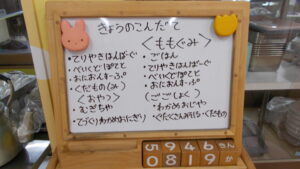 きょうのこんだて
・てりやきはんばーぐ
・べいくどぽてと
・おにおんすーぷ
・くだもの(み)
〈おやつ〉
・むぎちゃ
・てづくりわかめおにぎり
〈ももぐみ〉
・ごはん
・てりやきはんばーぐ
・べいくどぽてと
・おにおんすーぷ
〈ごごしょく〉
・わかめおじや
くだもの